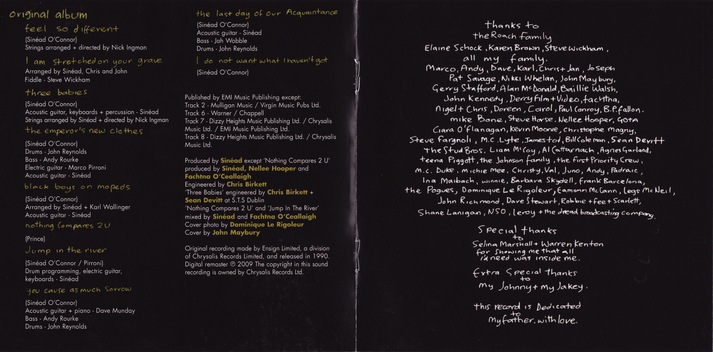 original album
feel so different
(Sinéad O'Connor)
Strings arranged + directed by Nick Ingman
I am stretched on your grave
Arranged by Sinéad, Chris and John
Fiddle - Steve Wickham
three babies
(Sinéad O'Connor)
Acoustic guitar, keyboards + percussion - Sinéad
Strings arranged by Sinéad + directed by Nick Ingman
the emperor's new clothes
(Sinéad O'Connor)
Drums - John Reynolds
Bass - Andy Rourke
Electric guitar - Marco Pirroni
Acoustic guitar - Sinéad
black boys on mopeds
(Sinéad O'Connor)
Arranged by Sinéad + Karl Wallinger
Acoustic guitar - Sinéad
nothing Compares 2U
(Prince)
Jump in the river
(Sinéad O'Connor / Pirroni)
Drum programming, electric guitar,
keyboards - Sinéad
you cause as much sorrow
(Sinéad O'Connor)
Acoustic guitar + piano - Dave Munday
Bass - Andy Rourke
Drums - John Reynolds
the last day of our Acquaintance
(Sinéad O'Connor)
Acoustic guitar - Sinéad
Bass - Jah Wobble
Drums - John Reynolds
I do not want what I haven't got
(Sinéad O'Connor)
Published by EMI Music Publishing except:
Track 2 - Mulligan Music / Virgin Music Pubs Ltd.
Track 6 - Warner / Chappell
Track 7 - Dizzy Heights Music Publishing Ltd. / Chrysalis
Music Ltd. / EMI Music Publishing Ltd.
Track 8 - Dizzy Heights Music Publishing Ltd. / Chrysalis
Music Ltd.
Produced by Sinéad except 'Nothing Compares 2 U'
produced by Sinéad, Nellee Hooper and
Fachtna O'Ceallaigh
Engineered by Chris Birkett
'Three Babies' engineered by Chris Birkett +
Sean Devitt at S.T.S Dublin
'Nothing Compares 2 U' and 'Jump In The River'
mixed by Sinéad and Fachtna O'Ceallaigh
Cover photo by Dominique Le Rigoleur
Cover by John Maybury
Original recording made by Ensign Limited, a division
of Chrysalis Records Limited, and released in 1990.
Digital remaster ℗ 2009 The copyright in this sound
recording is owned by Chrysalis Records Ltd.
thanks to
the Roach family
Elaine Schock, Karen Brown, Steve Wickham,
all my family.
Marco, Andy, Dave, Karl, Chris + Ian, Joseph
Pat Savage, Nikki Whelan, John Maybury,
Gerry Stafford, Alan McDonald, Baillie Walsh,
John Kennedy, Derry Film + Video, fachtna,
Nigel + Chris, Doreen, Carol, Paul Conroy, B.P. fallon,
mike Bone, Steve Horse, Nellee Hooper, Gota
Ciara O'flanagan, Kevin Moone, Christophe Magny,
Steve Fargnoli, M.C. Lyte, James tod, Bill Coleman, Sean Devitt
the Stud Bros. Liam McCoy, Al Cattarnach, Agnes Garland,
teena Piggott, the Johnson family, the first Priority Crew,
M.C. Duke, Michie Mee, Christy, Val, Juno, Andy, Padraic,
Ina Maibach, winnie, Barbara Skydell, Frank Barcelona,
the Pogues, Dominique Le Rigoleur, Eamonn McCann, Legs McNeil,
John Richmond, Dave Stewart, Robbie + fee + Scarlett,
Shane Lanigan, NSO, Leroy + the dread broadcasting company,
Special thanks
to
Selina Marshall + Warren Kenton
for showing me that all
I'd need was inside me.
Extra Special thanks
to
my Johnny + my Jakey.
this record is Dedicated
to
My father. with love.